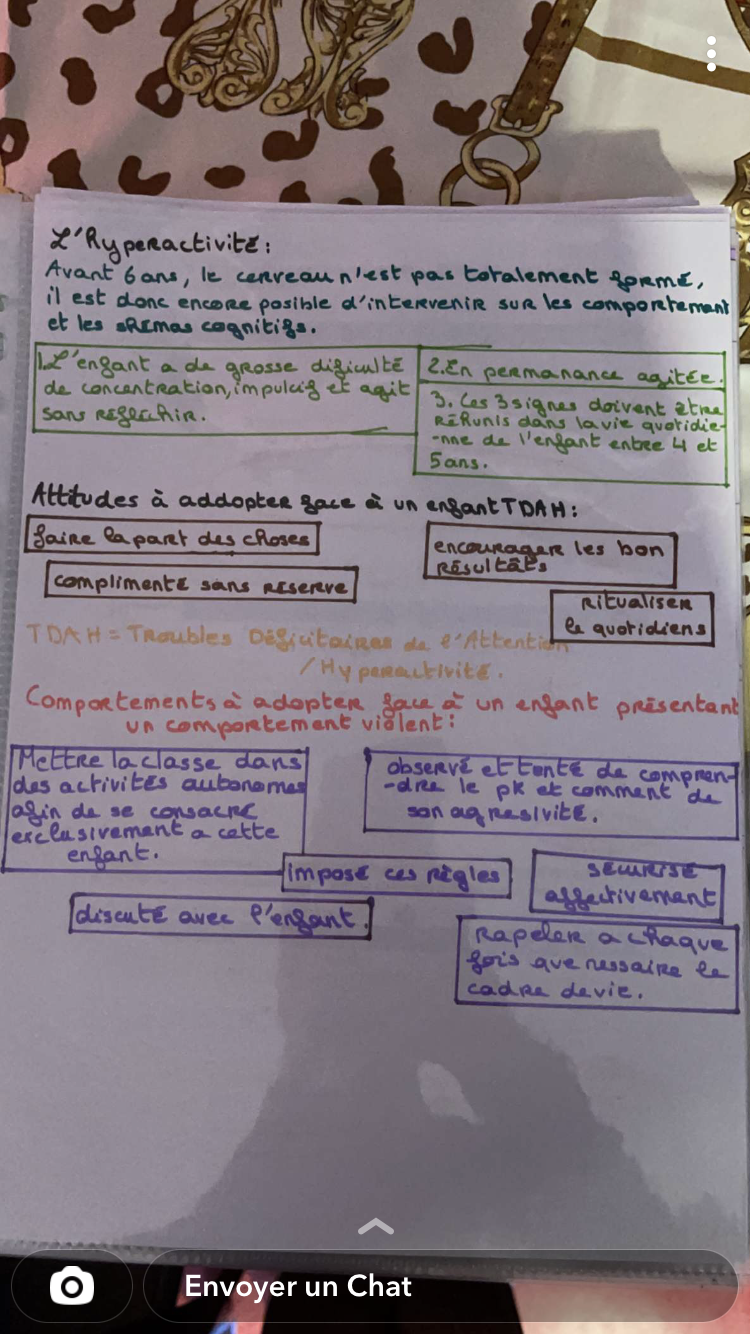 L'Hyperactivité :
Avant 6 ans, le cerveau n'est pas totalement formé,
il est donc encore posible d'intervenir sur les comportement
et les shemas cognitifs.
1. L'enfant a de grosse dificulté
de concentration, impulcif et agit
sans reflechir.
2. En permanance agitée.
3. Ces 3 signes doivent être
réhunis dans la vie quotidie-
-nne de l'enfant entre 4 et
5 ans.
Attitudes à addopter face à un enfant TDAH :
faire la part des choses
encourager les bon
résultats
complimenté sans reserve
ritualiser
le quotidiens
TDAH = Troubles Déficitaires de l'Attention
/ Hyperactivité.
Comportements à adopter face à un enfant présentant
un comportement violent :
Mettre la classe dans
des activités autonomes
afin de se consacré
exclusivement a cette
enfant.
observé et tenté de compren-
-dre le pk et comment de
son agresivité.
imposé ces règles
sécurisé
affectivement
discuté avec l'enfant.
Rapeler a chaque
fois que nessaire le
cadre de vie.
Envoyer un Chat